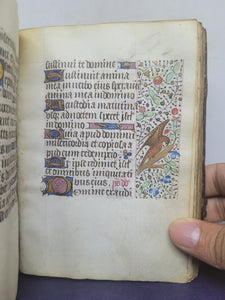 sustinui te domine
Sustinuit anima
mea in verbo eius speravit
anima mea in domino
A custodia matutina
usq ad noctem speret isrl
in domino
Quia apud dominum
misericordia et copiosa a
pud eum redemptio
Et ipse redimet isrl
ex omnibus iniquitati
bus eius
Domine exaudi